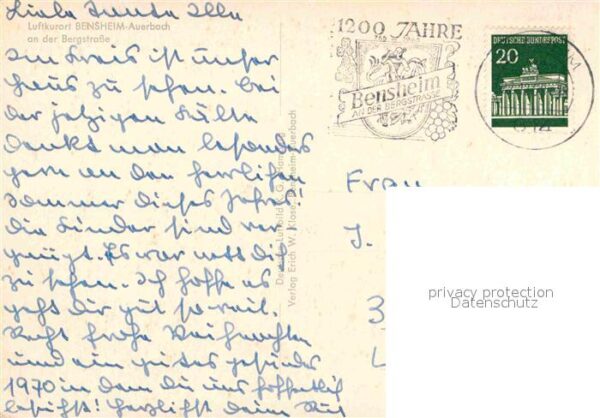 Liebe Tante Illa
Luftkurort BENSHEIM-Auerbach
an der Bergstraße
Im Kreis ist unser
Haus zu sehen. Bei
der jetzigen Kälte
denkt man besonders
gern an den herrlichen
Sommer dieses Jahres!
die Kinder sind ver-
gnügt. Es war nett dich
zu sehen. Ich hoffe es
geht dir gut soweit.
Recht frohe Weihnachten
und ein gutes gesundes
1970 in dem du uns hoffentlich
besuchst! Herzlichst deine
Verlag Erich W. Kloss, Bensheim-Auerbach
1200 JAHRE
765
Bensheim
AN DER BERGSTRASSE
DEUTSCHE BUNDESPOST
20
Frau
J.
3
L
privacy protection
Datenschutz